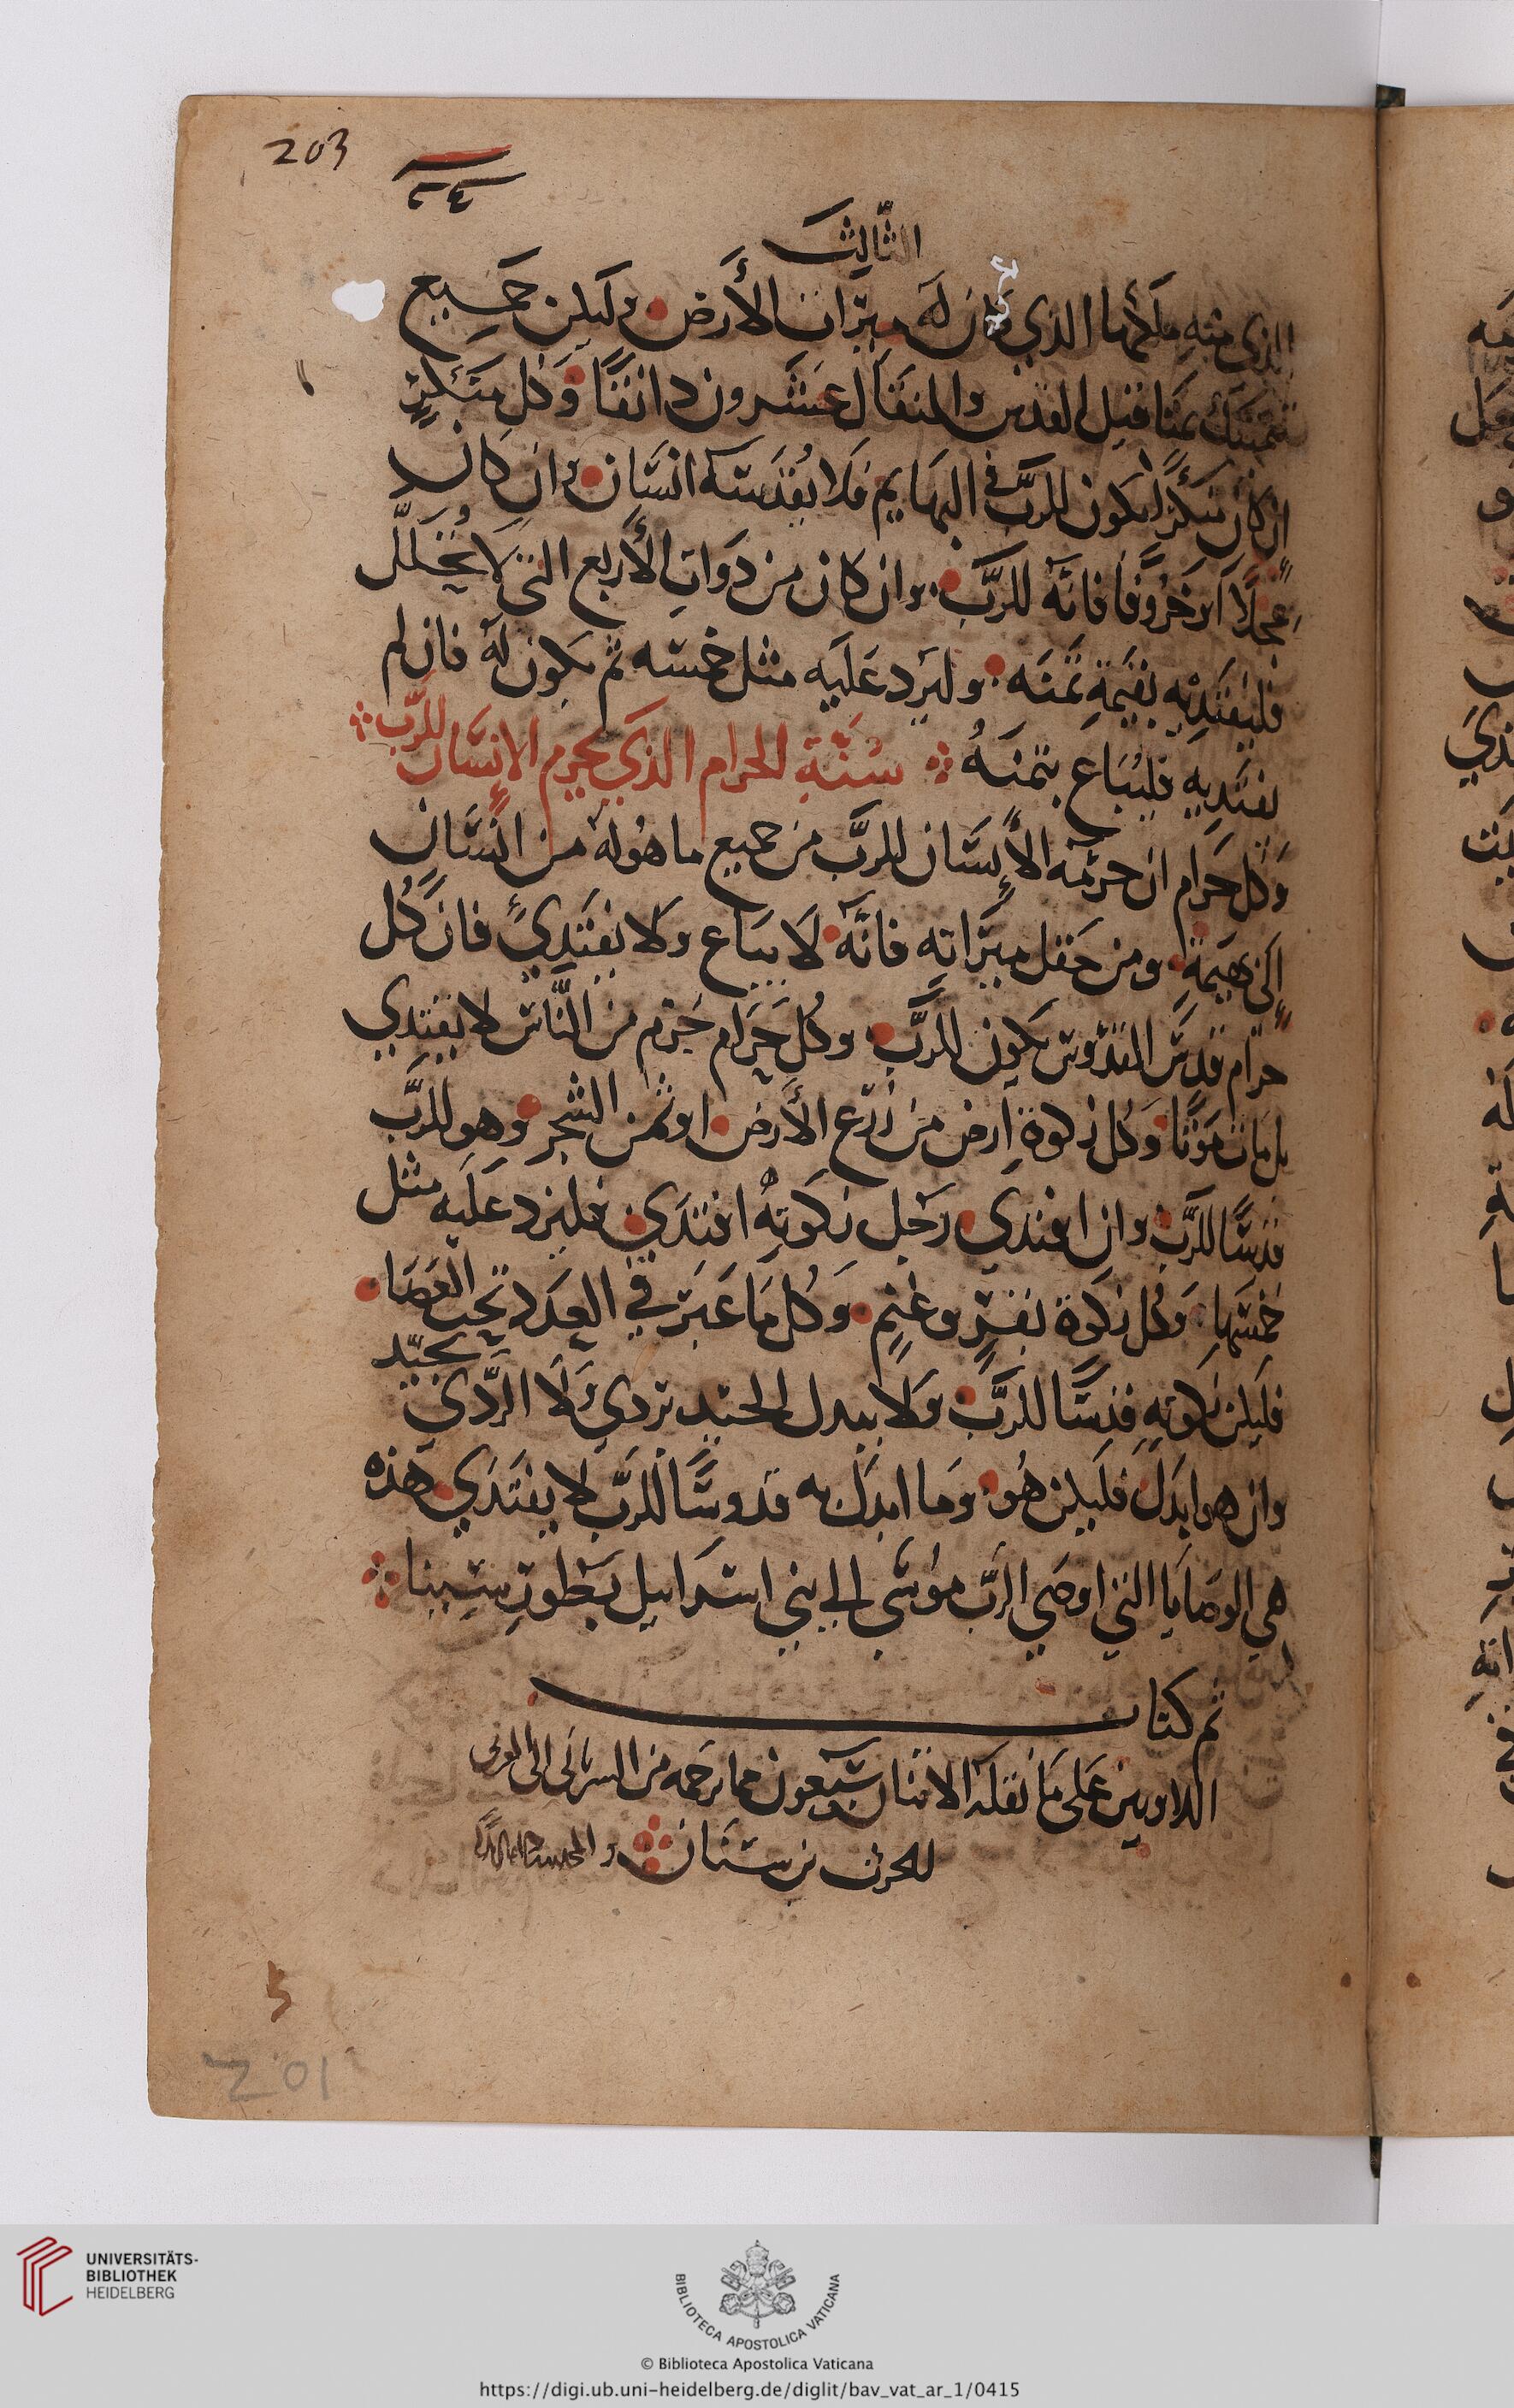 203
٢٤
الثالث
الذي منه ملكها الذي كان له ميراث الأرض وليكن جميع
بمثاقيل القدس والمثقال عشرون دانقًا وكل متبكر
ان كان يكون للرب في البهايم فلا يقدسه انسان وان كان
عجلًا او خروفًا فانه للرب وان كان من ذوات الأربع التي لا تحلل
فليفتديه بقيمة ثمنه وليزد عليه مثل خمسه ثم يكون له فان لم
يفتديه فليباع بثمنه سُنَّة الحرام الذي يحرم الإنسان للرب
وكل حرام ان حرمه الأنسان للرب من جميع ما هو له من انسان
الى بهيمة ومن حقل ميراثه فانه لا يباع ولا يفتدي فان كُل
حرام قدس القدوس يكون للرب وكُل حرام حرم من الناس لا يفتدي
بل مات موتًا وكل زكوة ارض من زرع الأرض او ثمن الشجر وهو للرب
قدسًا للرب وان افتدي رجل زكوته افتدي فليزد عليه مثل
خمسها وكل زكوة بقر وغنم وكل ما عبر في العدد تحت العصا
فليكن زكوته قدسًا للرب ولا يبدل الجيد بردي ولا الردي
بجيّد
وان هو ابدل فليكن هُو وما ابدل به قدوسًا للرب لا يفتدي هذه
هي الوصايا التي اوصي الرب موسى الي بني اسراييل بطور سينا
تم كتاب
اللاويين على ما نقله الاثنان سبعون مما ترجمه من السرياني الى العربي
للحرث بن سنان
5
201
UNIVERSITÄTS-
BIBLIOTHEK
HEIDELBERG
BIBLIOTECA APOSTOLICA VATICANA
© Biblioteca Apostolica Vaticana
https://digi.ub.uni-heidelberg.de/diglit/bav_vat_ar_1/0415